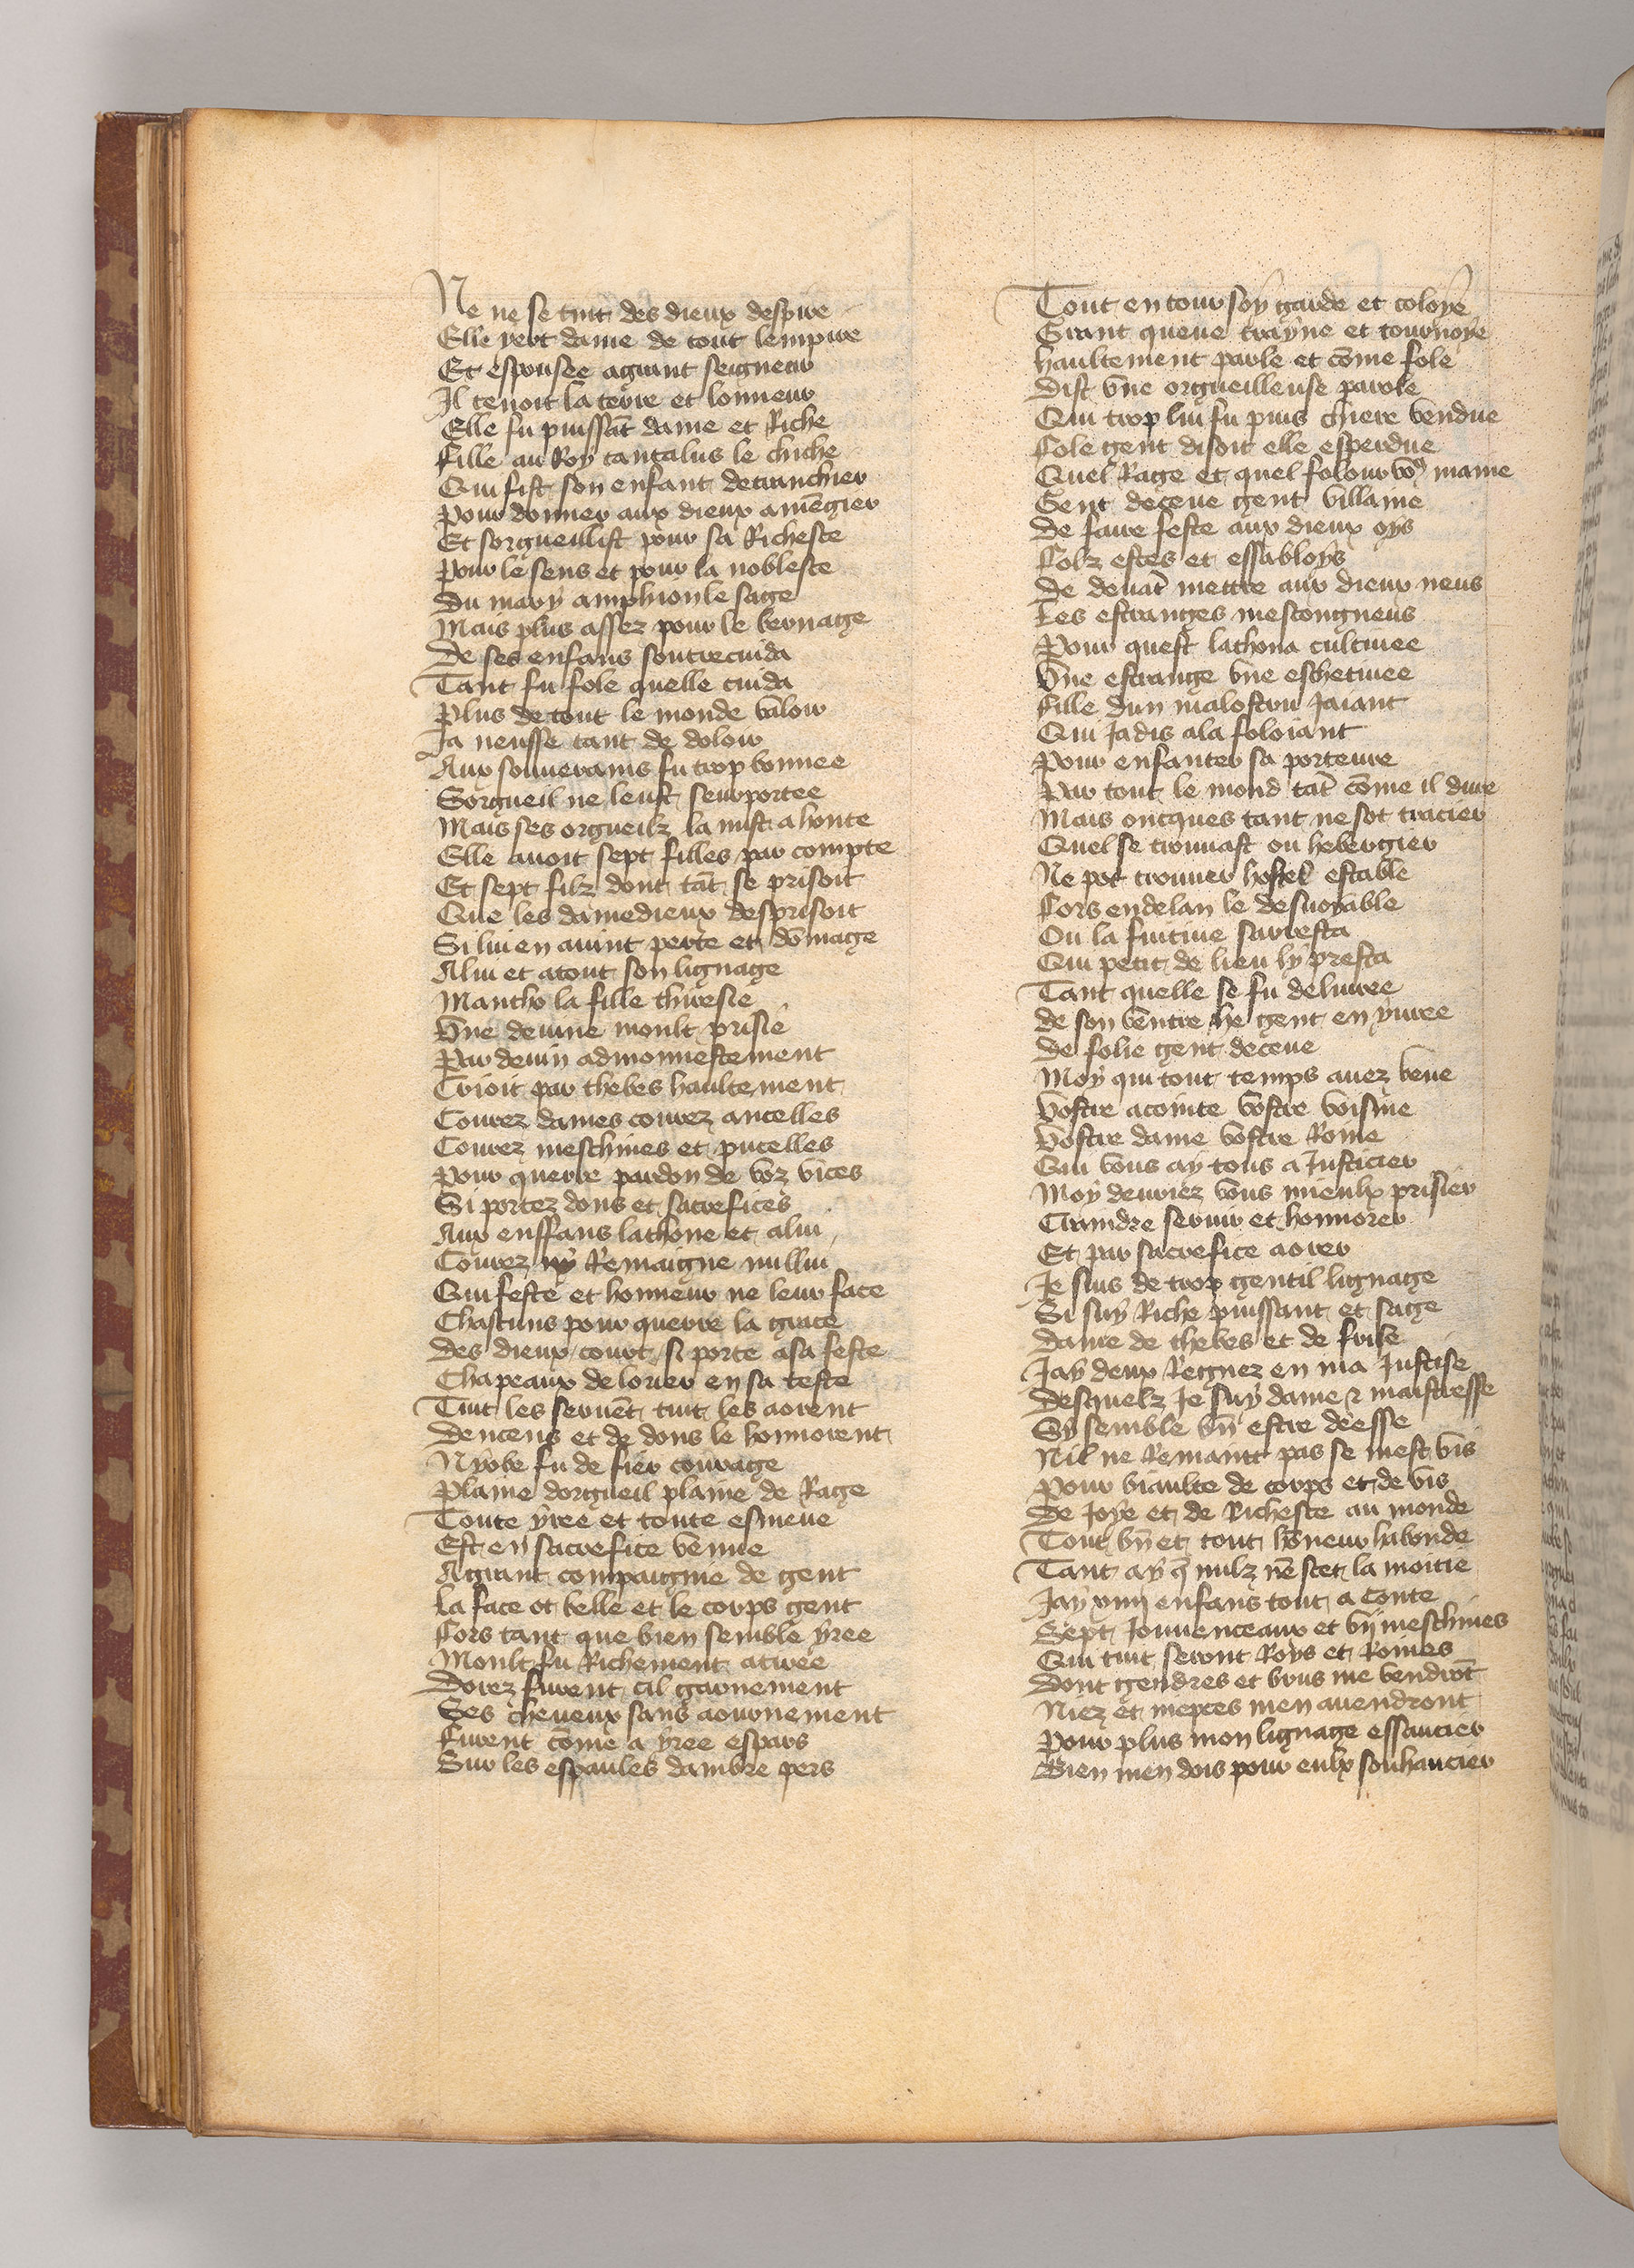 Ne ne se tint des dieux despire
Elle yert dame de tout lempire
Et espousee agrant seigneur
Il tenoit la terre et lonneur
Elle fu puissāt dame et Riche
Fille au Roy tantalus le chiche
Qui fist son enfant detranchier
Pour donner aux dieux amēgier
Et sorgueillist pour sa Richeste
Pour le sens et pour la nobleste
Du mary amphion le sage
Mais plus assez pour le bernage
De ses enfans soutrecuida
Tant fu fole quelle cuida
Plus de tout le monde valoir
Ja neusse tant de doloir
Aux souverains fu trop bonnee
Sorgueil ne leust seurportee
Mais ses orgueilz la mist a honte
Elle avoit sept filles par compte
Et sept filz dont tāt se prisoit
Que les damedieux desprisoit
Si lui en avint perte et dōmage
Alui et atout son lignage
Mantho la fille thiresie
Vne devine moult prisie
Par devin admonnestement
Crioit par thebes haultement
Courez dames courez ancelles
Courez meschines et pucelles
Pour querre pardon de voz vices
Si portez dons et sacrefices
Aux enffans lathone et alui
Courez ny Remaigne nullui
Qui feste et honneur ne leur face
Chascuns pour querre la grace
Des dieux court si porte asa feste
Chapeaux de lorier en sa teste
Tuit les servēt tuit les aorent
Dencens et de dons le honnorent
Nyobe fu de fier courage
Plaine dorgueil plaine de Rage
Toute yree et toute esmeue
Est en sacrefice venue
Agrant compaignie de gent
La face ot belle et le corps gent
Fors tant que bien semble yree
Moult fu Richement atiree
Dorez furent cil garnement
Ses cheveux sans aournement
Furent cōme a yree espars
Sur les espaules dambre pers
Tout entour soy garde et coloye
Grant queue trayne et tournoye
Haultement parle et cōme fole
Dist vne orgueilleuse parole
Qui trop lui fu puis chiere vendue
Fole gent disoit elle esperdue
Quel Rage et quel folour vo9 maine
Gent deceue gent villaine
De faire feste aux dieux oys
Folz estes et essabloys
De devāt mettre aux dieux neus
Les estranges mescongneus
Pour quest lathona cultivee
Vne estrange vne eschetivee
Fille dun malostru Jaiant
Qui Jadis ala foloiant
Pour enfanter sa porteure
Par tout le mond tāt cōme il dure
Mais oncques tant ne sot tracier
Quel se trouvast ou hebergier
Ne pot trouver hostel estable
Fors endelan le desvoyable
Ou la fuitive sarresta
Qui petit de lieu ly presta
Tant quelle se fu delivree
De son ventre he gent enyvree
De folie gent deceue
Moy qui tout temps avez veue
Vostre acointe vostre voisine
Vostre dame vostre Roine
Qui vous ay tous a Justicier
Moy devriez vous mieulx prisier
Craindre servir et honnorer
Et par sacrefice aorer
Je suis de trop gentil lignage
Si suy Riche puissant et sage
Dame de thebes et de frise
Jay deux Regnez en ma Justise
Desquelz Je suy dame & maistresse
Sy semble bn̄ estre deesse
Nil ne Remaint pas se mest vis
Pour biaulte de corps et de vis
De Joye et de Richeste au monde
Tout bn̄ et tout hōneur habonde
Tant ay q̄ nulz nē scet la moitie
Jay xiiij enfans tout a conte
Sept Jouvenceaux et vij meschines
Qui tuit seront Roys et Roines
Dont gendres et brus me vendrōt
Niez et nieptes men avendront
Pour plus mon lignage essaucier
Bien men dois pour eulx souhaucier